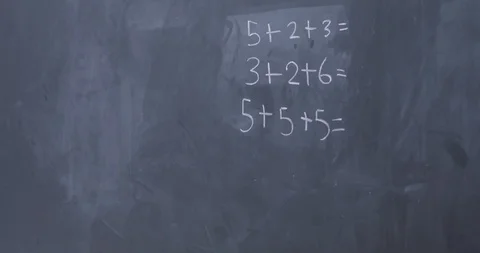 5+2+3=
3+2+6=
5+5+5=